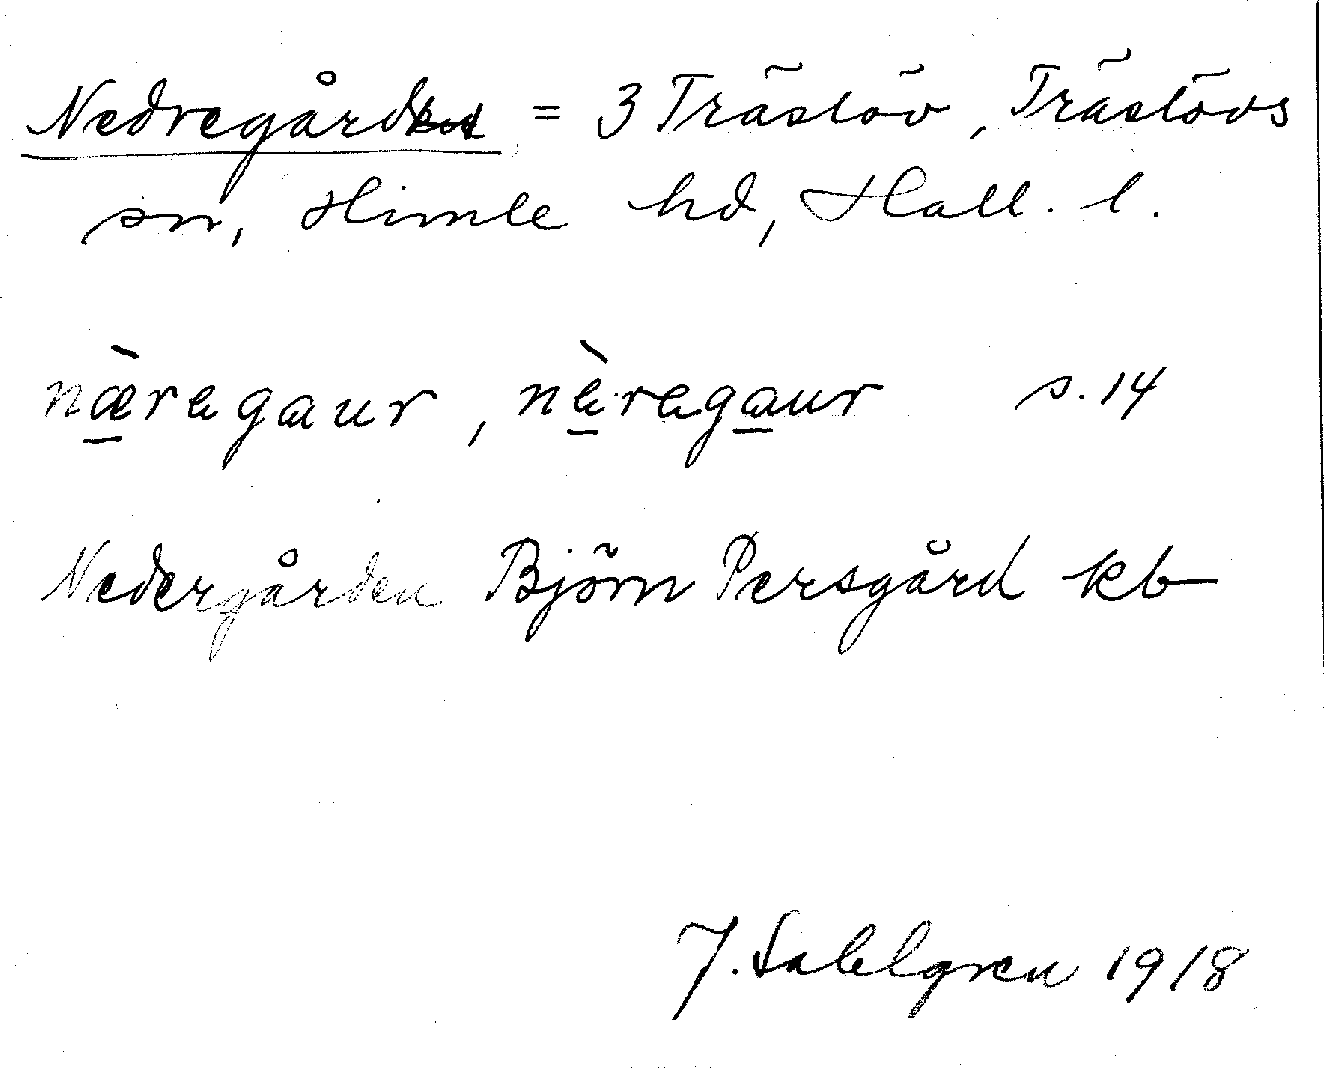 Nedregård = 3 Träslöv, Träslövs
sn, Himle hd, Hall. l.
næ̠̀ragaur, nè̠raga̠ur s. 14
Nedergården Björn Persgård kb
J. Sahlgren 1918